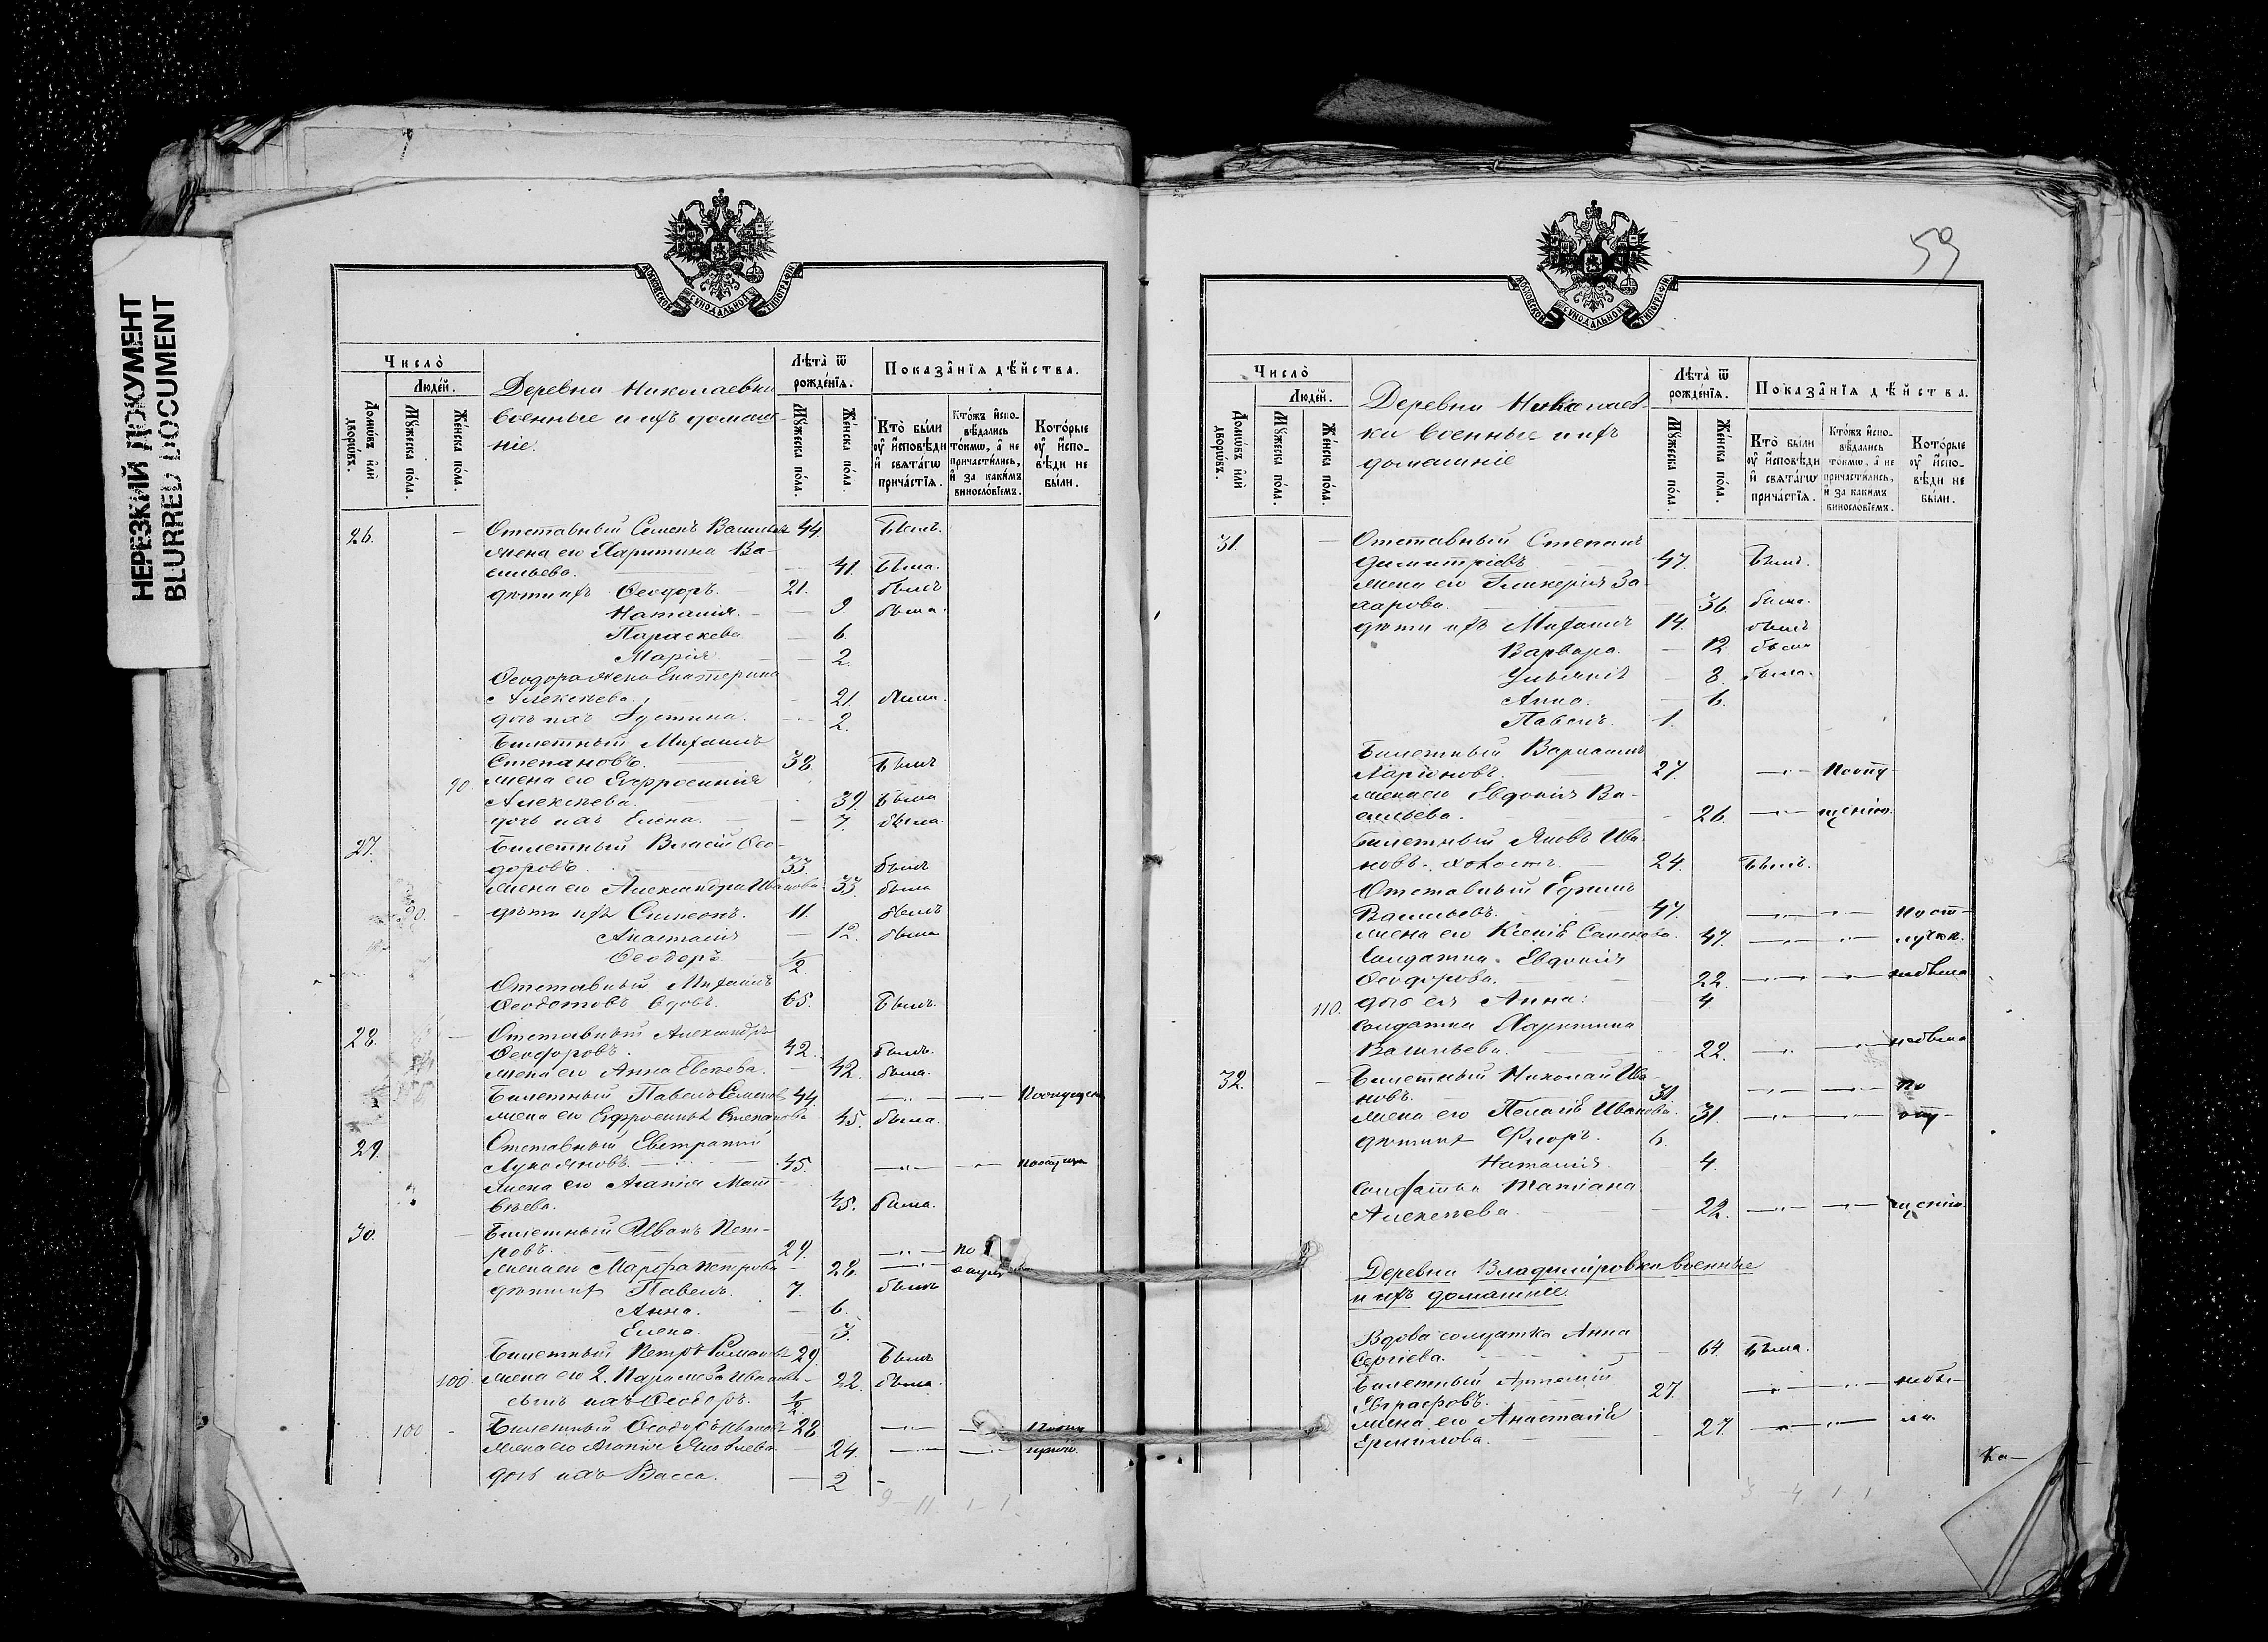 НЕРЕЗКИЙ ДОКУМЕНТ
BLURRED DOCUMENT
МОСКОВСКОЙ СУНОДАЛЬНОЙ ТИПОГРАФІИ
Число̀
Людей.
Домѡвъ и҆лѝ дворѡвъ.
Мꙋ́жеска по́ла.
Же́нска по́ла.
Деревни Николаевки
военные и ихъ домаш-
ніе.
Лѣта̀ ѿ рожде́нїѧ.
Мꙋ́жеска по́ла.
Же́нска по́ла.
Показа̑нїѧ дѣ́йства.
Кто̀ бы́ли ᲂу҆ и҆сповѣ́ди и҆ свѧта́гѡ прича́стїѧ.
Кто́жъ и҆спо-вѣ́дались то́кмѡ, а҆ не причасти́лись, и҆ за каки́мъ виносло́вїемъ.
Кото́рые ᲂу҆ и҆спо-вѣ́ди не бы́ли.
26. — Отставный Семенъ Васильевъ 44. Былъ.
жена его Харитина Ва-
сильева. 41. Была.
дѣти ихъ Ѳеодоръ. 21. былъ
Наталія. — 9. была.
Параскева. — 6.
Марія — 2.
Ѳеодора жена Екатерина
Алексѣева. — 21. была.
дочь ихъ Іустина. — 2.
Билетный Михаилъ
Степановъ. 38. Былъ
90. жена его Евфросинія
Алексѣева. 39. Была
дочь ихъ Елена. — 7. была.
27. Билетный Власій Ѳео-
доровъ. 33. былъ
жена его Александра Иванова 33. была
90. — дѣти ихъ Симеонъ. 11. былъ
Анастасія — 12. была
Ѳеодоръ 1/2
Отставный Михаилъ
Ѳеодотовъ вдовъ. 65. Былъ.
28. — Отставный Александръ
Ѳеодоровъ. 42. Былъ.
жена его Анна Евсѣева. — 42. была.
Билетный Павелъ Семенов 44. — —
жена его Евфросинія Степанова 45. была.
29. Отставный Евстратій
Лукояновъ. 45. — —
жена его Агапія Мат-
вѣева. 45. была.
30. — Билетный Иванъ Пет-
ровъ. 29. — по
жена его Марфа Петрова — 28. —
дѣти ихъ Павелъ. 7. былъ
Анна. — 6.
Елена. — 3.
Билетный Петръ Романовъ 29 Былъ
100. жена его 2. Параскева Иванова 22. была.
сынъ ихъ Ѳеодоръ. 1/2
100 - Билетный Ѳеодоръ 28 — —
жена его Агапія Яковлева 24. — —
дочь ихъ Васса. — 2 -
9 - 11. 1 - 1
59
МОСКОВСКОЙ СУНОДАЛЬНОЙ ТИПОГРАФІИ
Число̀
Людей.
Домѡвъ и҆лѝ дворѡвъ.
Мꙋ́жеска по́ла.
Же́нска по́ла.
Деревни Николаев-
ки военные и ихъ
домашніе
Лѣта̀ ѿ рожде́нїѧ.
Мꙋ́жеска по́ла.
Же́нска по́ла.
Показа̑нїѧ дѣ́йства.
Кто̀ бы́ли ᲂу҆ и҆сповѣ́ди и҆ свѧта́гѡ прича́стїѧ.
Кто́жъ и҆спо-вѣ́дались то́кмѡ, а҆ не причасти́лись, и҆ за каки́мъ виносло́вїемъ.
Кото́рые ᲂу҆ и҆спо-вѣ́ди не бы́ли.
31. — Отставный Степанъ
Димитріевъ 47. Былъ.
жена его Гликерія За-
харова. 36. была.
дѣти ихъ Михаилъ 14. былъ
Варвара. — 12. была
Ульянія — 8. была.
Анна. - 6.
Павелъ. 1.
Билетный Варлаамъ
Ларіоновъ. 27. — По опу-
жена его Евдокія Ва-
сильева. - 26. — щенію.
Билетный Яковъ Ива-
новъ. холостъ. 24. Былъ.
Отставный Ефимъ
Васильевъ. 47. — — по от-
жена его Ксенія Семенова. 47. — — лучкѣ.
Солдатка Евдокія
Ѳеодорова. 22. — — не была
110. дочь ея Анна. 4.
Солдатка Харитина
Васильева. 22. — — не была
32. — Билетный Николай Ива-
новъ. 31 — — по
жена его Пелагія Иванова. 31. — — опу-
дѣти ихъ Флоръ. 6.
Наталія. 4.
Солдатка Татіана
Алексѣева. — 22. — — щенію.
Деревни Владиміровки военные
и ихъ домашніе.
Вдова солдатка Анна
Сергіева. — 64. Была.
Билетный Артемій
Евграфовъ. 27. — — не бы-
жена его Анастасія
Ермилова. — 27. — — ли.
Ка—
3 - 4 1 1